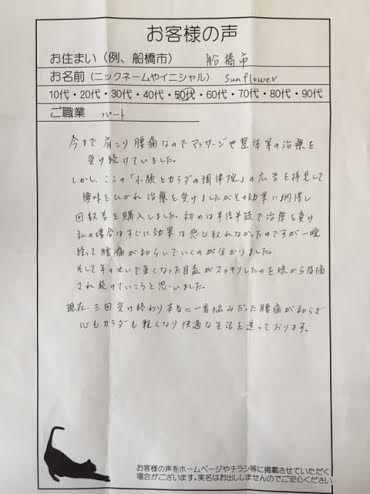 お客様の声
お住まい（例、船橋市） 船橋市
お名前（ニックネームやイニシャル） sunflower
10代・20代・30代・40代・50代・60代・70代・80代・90代
ご職業 パート
今まで肩こり腰痛なのでマッサージや整体等の治療を
受け続けていました。
しかし、ここの「小顔とカラダの調律院」の広告を拝見して
興味をひかれ治療を受けましたがその効果に納得し
回数券を購入しました。初めは半信半疑で治療を受け
私の場合はすぐに効果は感じ取れなかったのですが一晩
経って腰痛が和らいでいくのが分かりました。
そしてそのせいで重くなった目蓋がスッキリしたのを娘から指摘
され続けていこうと思いました。
現在、三回受け終わり本当に一番悩みだった腰痛が和らぎ
心もカラダも軽くなり快適な生活を送っております。
お客様の声をホームページやチラシ等に掲載させていただく
場合がございます。実名はお出ししませんのでご安心ください